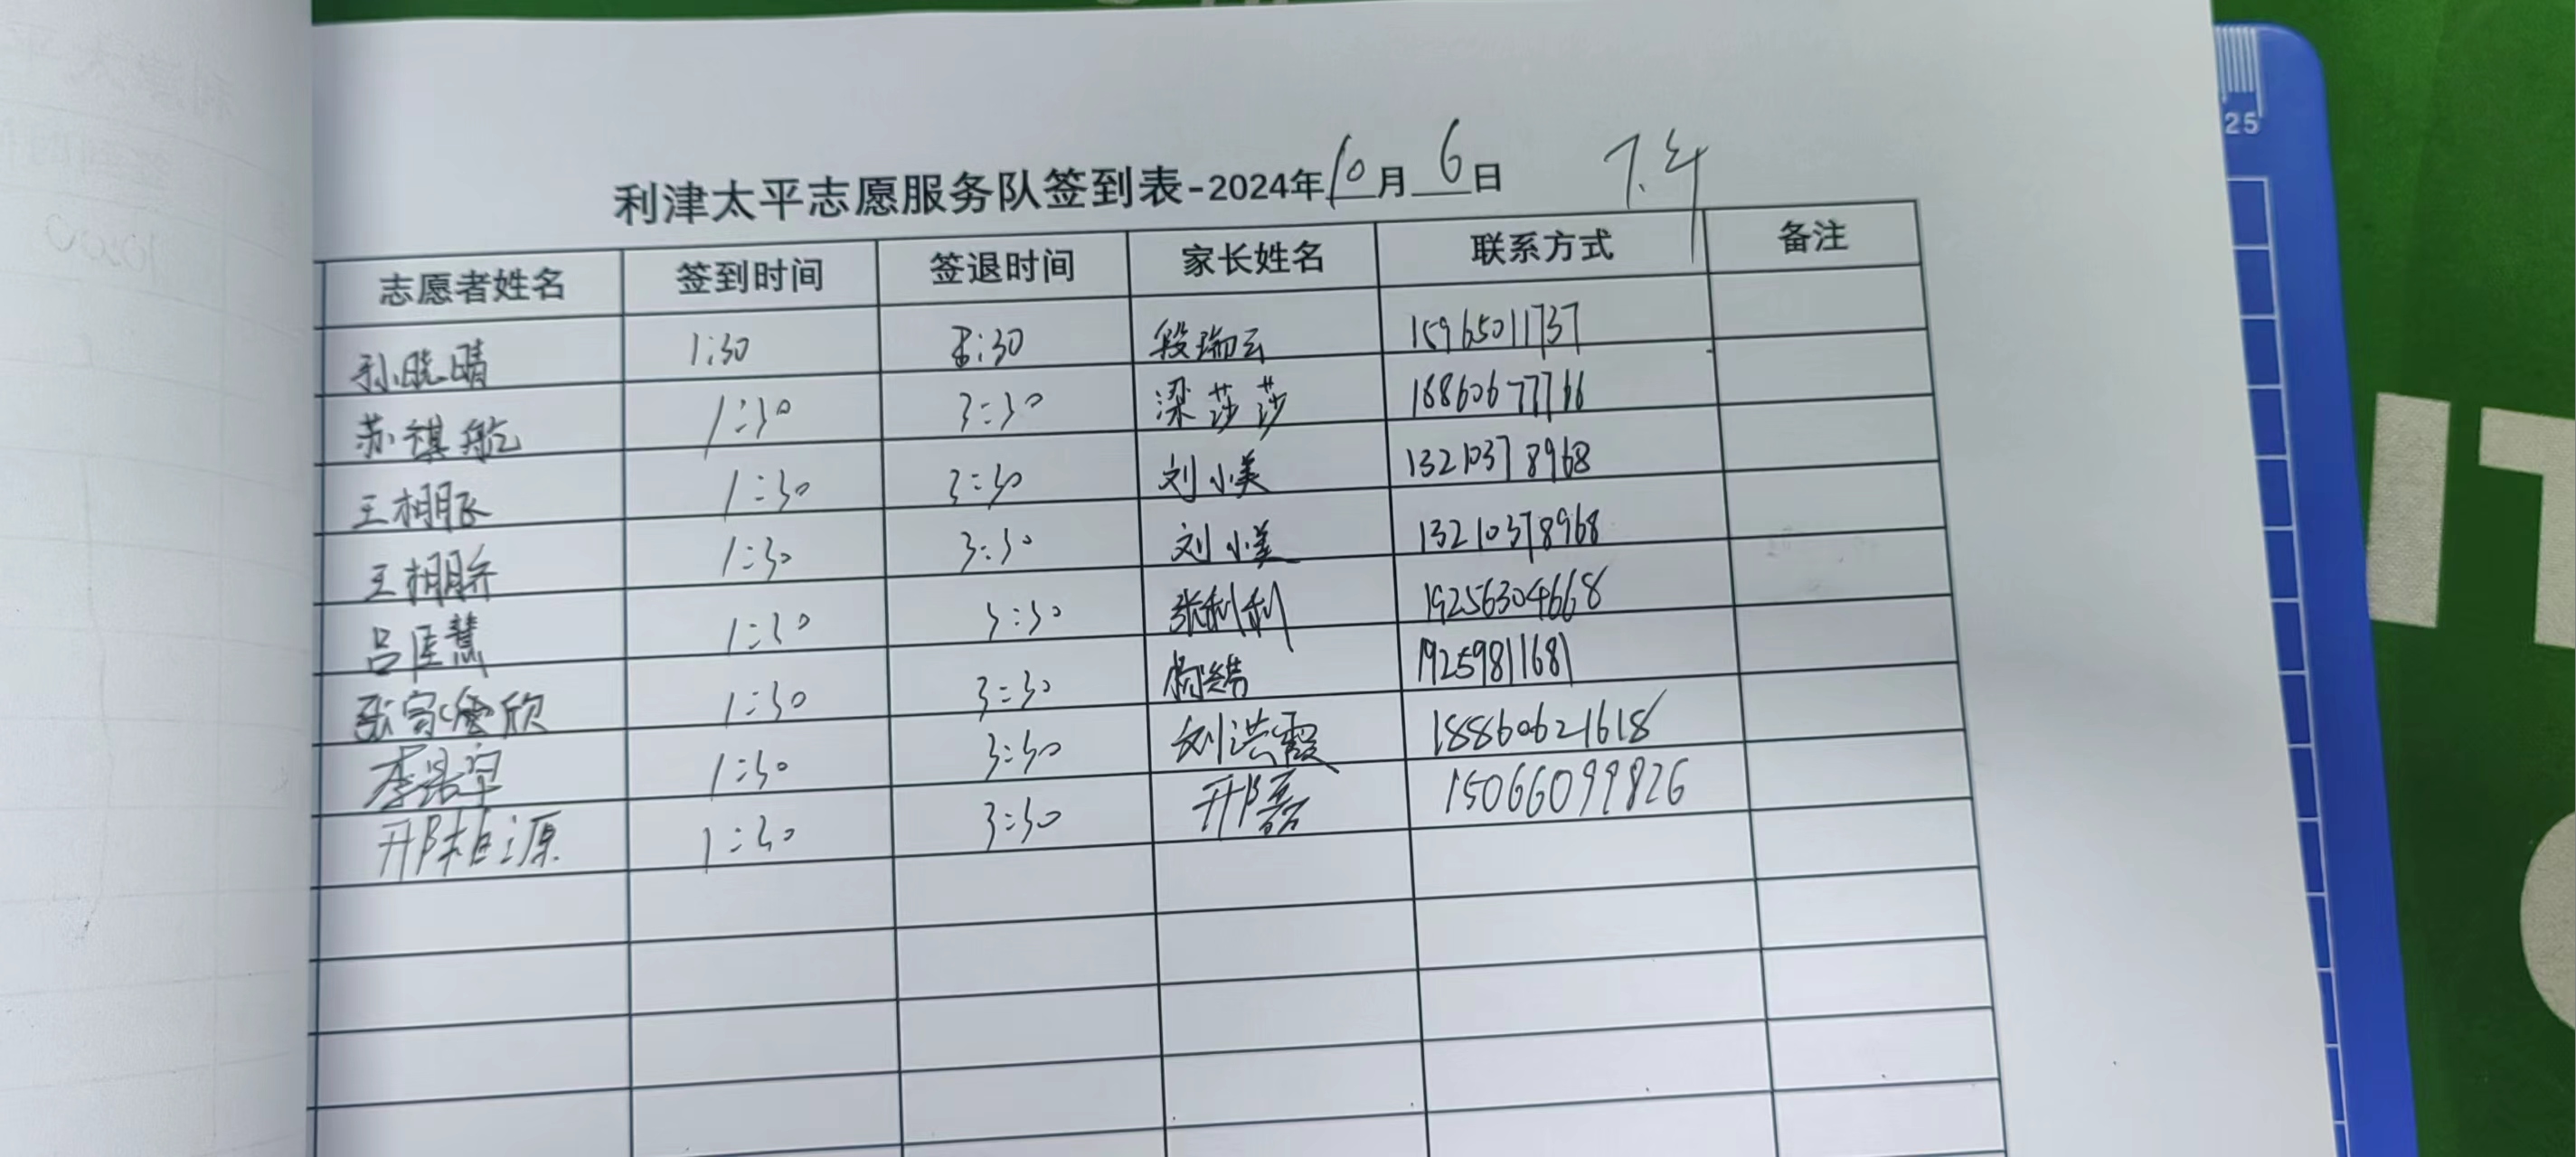 利津太平志愿服务队签到表-2024年10月6日 下午
志愿者姓名 签到时间 签退时间 家长姓名 联系方式 备注
孙晓晴 1:30 3:30 段瑞云 15965011737
苏祺航 1:30 3:30 梁莎莎 18860677766
王棚飞 1:30 3:30 刘小美 13210378968
王棚 1:30 3:30 刘小美 13210378968
吕佳慧 1:30 3:30 张利利 19256304668
张家欣 1:30 3:30 19259811681
李 1:30 3:30 刘洪霞 18860621618
邢植源 1:30 3:30 邢磊 15066099826
25